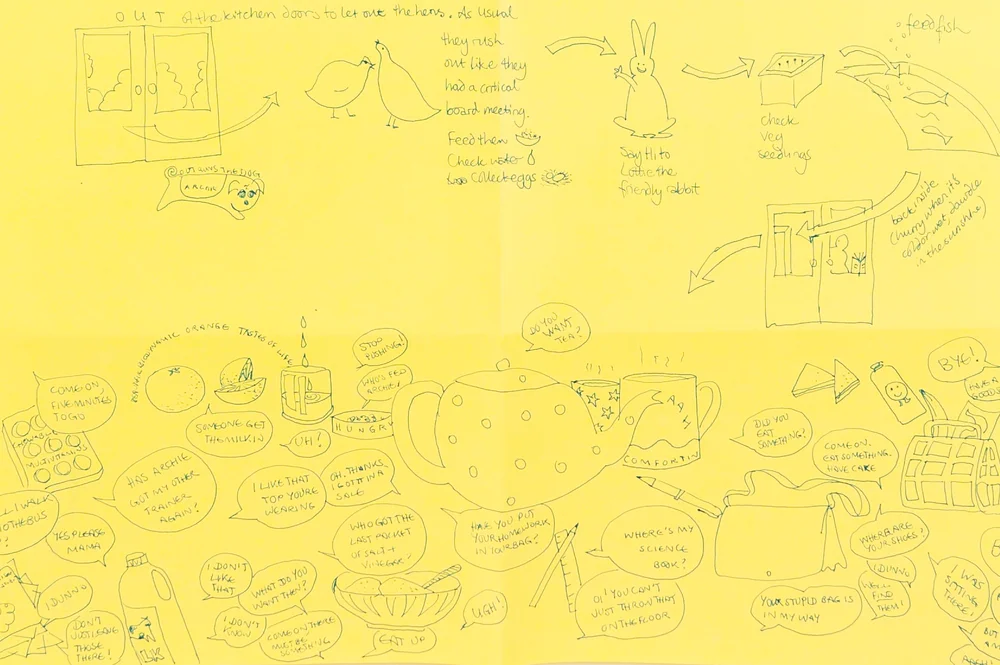 OUT of the kitchen doors to let out the hens. As usual
they rush
out like they
had a critical
board meeting.
Feed them
Check water
collect eggs
Say Hi to
Lottie the
friendly rabbit
check
veg
seedlings
feed fish
back inside
(hurry when it's
cold or wet, dawdle
in the sunshine)
ARCHIE
ORANGE TASTES OF LIFE
DO YOU
WANT
TEA?
STOP
PUSHING!
WHO'S FED
ARCHIE?
HUNGRY
COME ON,
FIVE MINUTES
TO GO
MULTIVITAMINS
SOMEONE GET
THE MILK IN
UH!
HAS ARCHIE
GOT MY OTHER
TRAINER
AGAIN?
I LIKE THAT
TOP YOU'RE
WEARING
OH, THANKS,
I GOT IT IN A
SALE
COMFORTIN
DID YOU
EAT
SOMETHING?
COME ON.
EAT SOMETHING.
HAVE CAKE
BYE!
HAVE A
GOOD
WALK
THE BUS
?
YES PLEASE
MAMA
I DUNNO
DON'T
JUST LEAVE
THOSE
THERE!
I DON'T
LIKE
THAT
WHAT DO YOU
WANT THEN?
I DON'T
KNOW
COME ON THERE
MUST BE
SOMETHING
WHO GOT THE
LAST PACKET
OF SALT +
VINEGAR
EAT UP
UGH!
HAVE YOU PUT
YOUR HOMEWORK
IN YOUR BAG?
WHERE'S MY
SCIENCE
BOOK?
OI! YOU CAN'T
JUST THROW THAT
ON THE FLOOR
YOUR STUPID BAG IS
IN MY WAY
WHERE ARE
YOUR SHOES?
I DUNNO
WE'LL
FIND
THEM!
I WAS
SITTING
THERE!